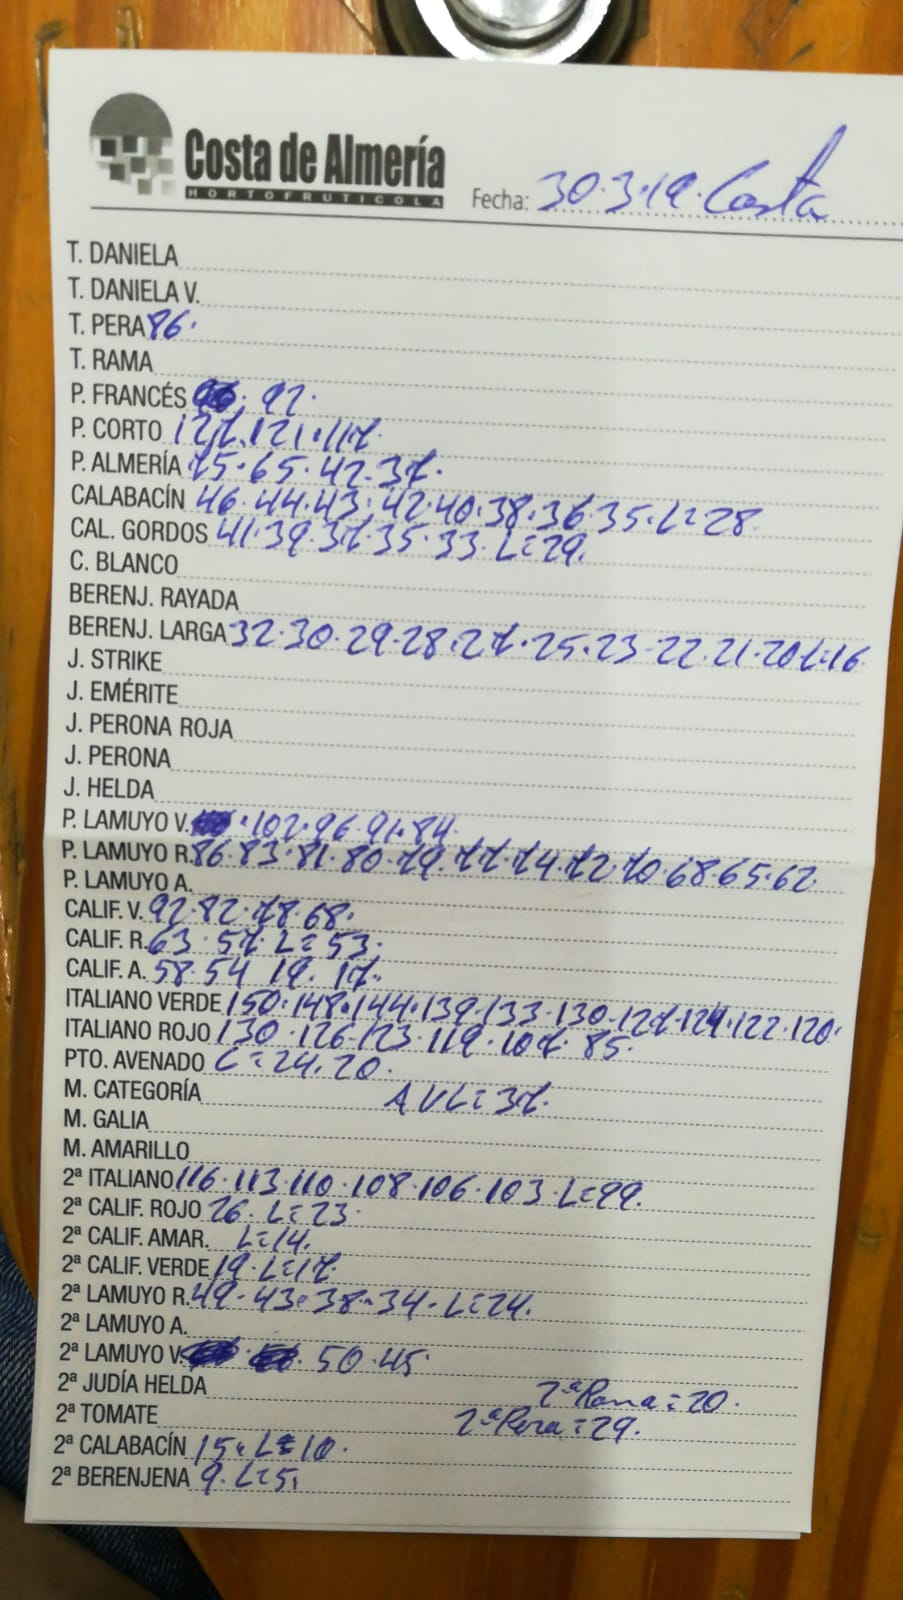 Costa de Almería
HORTOFRUTICOLA
Fecha: 30.3.19. Costa
T. DANIELA
T. DANIELA V.
T. PERA 86.
T. RAMA
P. FRANCÉS 92.
P. CORTO 127.121.117.
P. ALMERÍA 75.65.42.37.
CALABACÍN 46.44.43.42.40.38.36.35.L=28
CAL. GORDOS 41.39.37.35.33.L=29.
C. BLANCO
BERENJ. RAYADA
BERENJ. LARGA 32.30.29.28.27.25.23.22.21.20.L=16
J. STRIKE
J. EMÉRITE
J. PERONA ROJA
J. PERONA
J. HELDA
P. LAMUYO V. .102.96.91.84.
P. LAMUYO R. 86.83.81.80.79.77.74.72.70.68.65.62.
P. LAMUYO A.
CALIF. V. 92.82.78.68.
CALIF. R. 63.57.L=53.
CALIF. A. 58.54 19. 17.
ITALIANO VERDE 150.148.144.139.133.130.127.124.122.120.
ITALIANO ROJO 130.126.123.119.107.85.
PTO. AVENADO L=24.20.
M. CATEGORÍA AVL=37.
M. GALIA
M. AMARILLO
2ª ITALIANO 116.113.110.108.106.103.L=99.
2ª CALIF. ROJO 26.L=23.
2ª CALIF. AMAR. L=14.
2ª CALIF. VERDE 19.L=17.
2ª LAMUYO R. 49.43.38.34.L=24.
2ª LAMUYO A.
2ª LAMUYO V. 50.45.
2ª JUDÍA HELDA 2ª Rama=20.
2ª TOMATE 2ª Pera=29.
2ª CALABACÍN 15.L=10.
2ª BERENJENA 9.L=5.